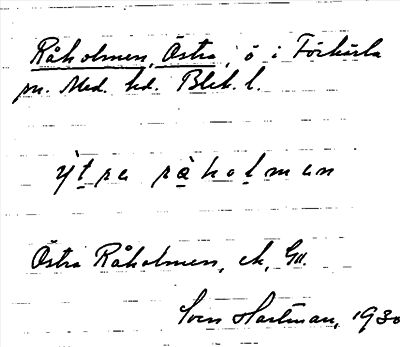 Råholmen, Östra, ö i Förkärla
sn. Med. hd. Blek. l.
ỳt̲re rà̲hol̲men
Östra Råholmen, ek, Gu.
Sven Hartman, 1930